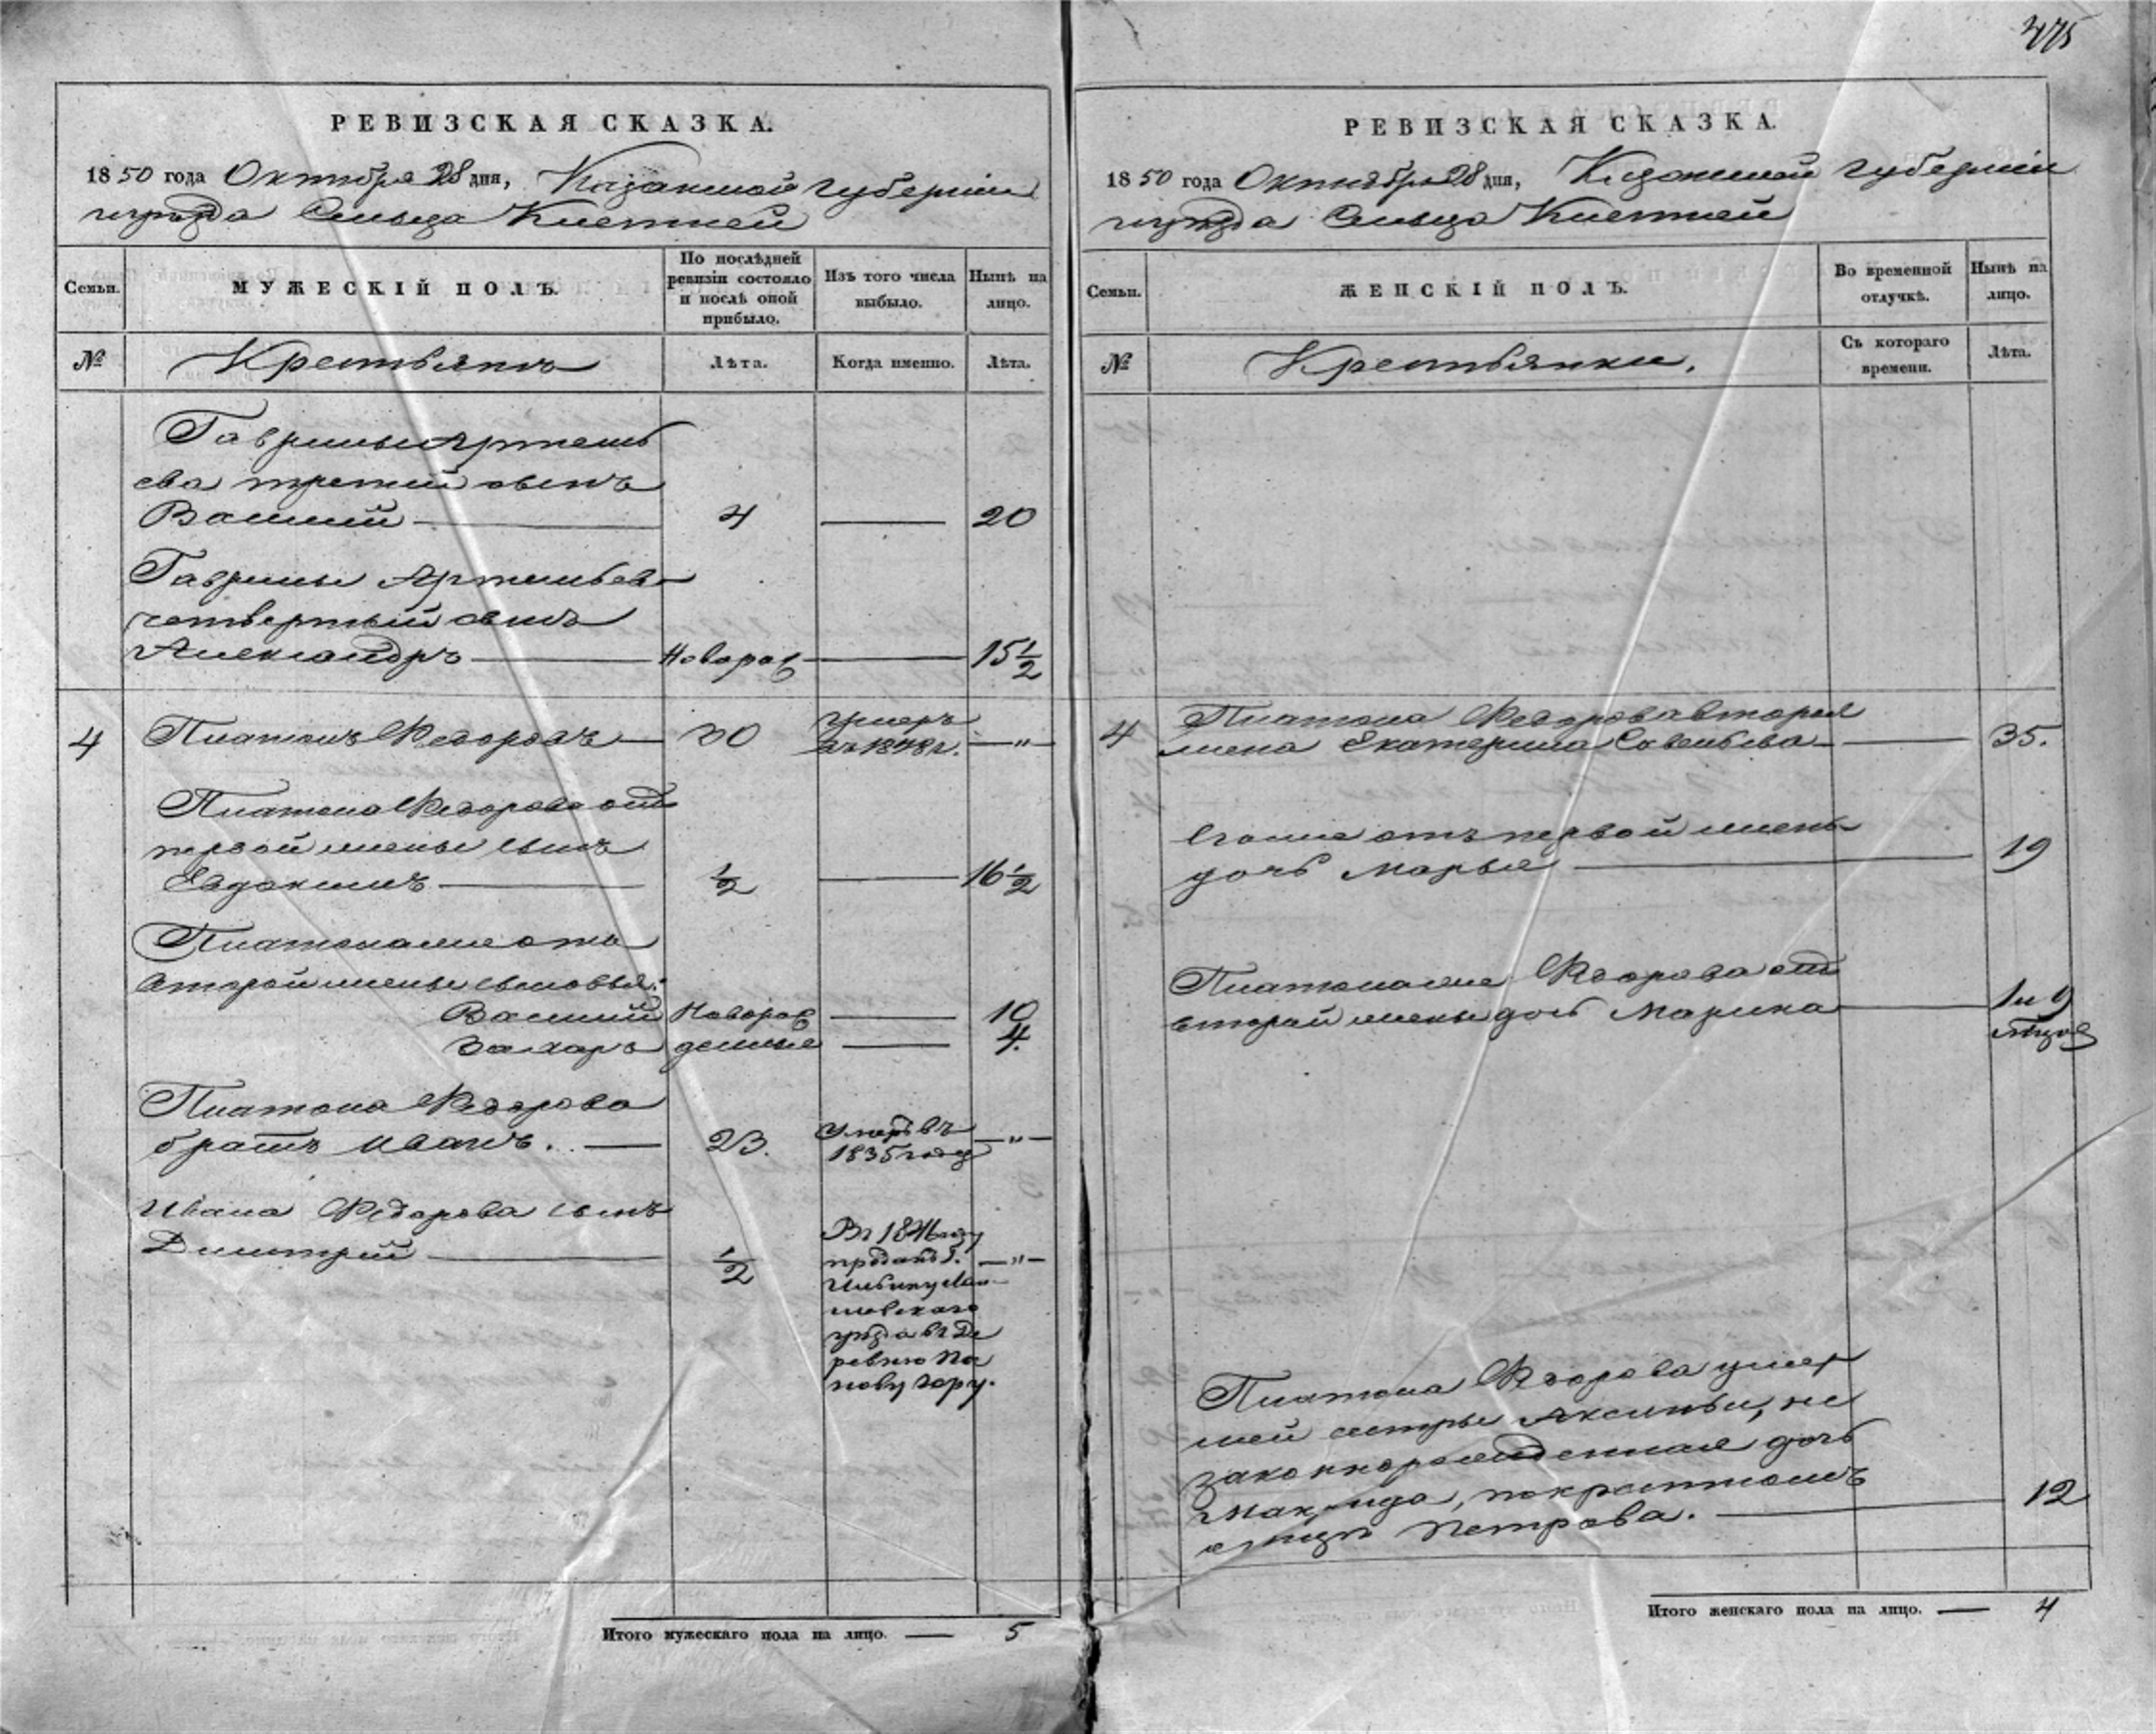 475
РЕВИЗСКАЯ СКАЗКА.
1850 года Октября 28 дня, Казанской губернiи
уѣзда Сельца
Семьи.
МУЖЕСКIЙ ПОЛЪ.
По послѣдней ревизiи состояло и послѣ оной прибыло.
Изъ того числа выбыло.
Нынѣ на лицо.
№
Крестьянъ
Лѣта.
Когда именно.
Лѣта.
Гаврилы Артемь
ева третiй сынъ
Василiй — 4 — 20
Гаврилы Артемьева
четвертый сынъ
Александръ — Новорож — 15 1/2
4 Платонъ Ѳедоровъ — 30 умеръ въ 1848 г. — „ —
Платона Ѳедорова отъ
первой жены сынъ
Евдокимъ — 1/2 — 16 1/2
Платона же отъ
второй жены сыновья:
Василiй Новорож — 10
Захаръ денные — 4.
Платона Ѳедорова
братъ Иванъ. — 23. Умеръ въ 1835 году — „ —
Ивана Ѳедорова сынъ
Димитрiй — 1/2 — „ —
Въ 1846 году
проданъ Г.
Ильину Лаи
шевскаго
уѣзда въ Де
ревню По
пову гору.
Итого мужескаго пола на лицо. — 5
РЕВИЗСКАЯ СКАЗКА.
1850 года Октября 28 дня, Казанской губернiи
уѣзда Сельца
Семьи.
ЖЕНСКIЙ ПОЛЪ.
Во временной отлучкѣ.
Нынѣ на лицо.
№
Крестьянки.
Съ котораго времени.
Лѣта.
4 Платона Ѳедорова вторая
жена Екатерина Савельева — 35.
Егоже отъ первой жены
дочь Марья — 19
Платона же Ѳедорова отъ
второй жены дочь Марина — 1 и 9
мѣсяц
Платона Ѳедорова умер
шей сестры Аксиньи, не
законнорожденная дочь
Макрида, по крестномъ
отцѣ Петрова. — 12
Итого женскаго пола на лицо. — 4